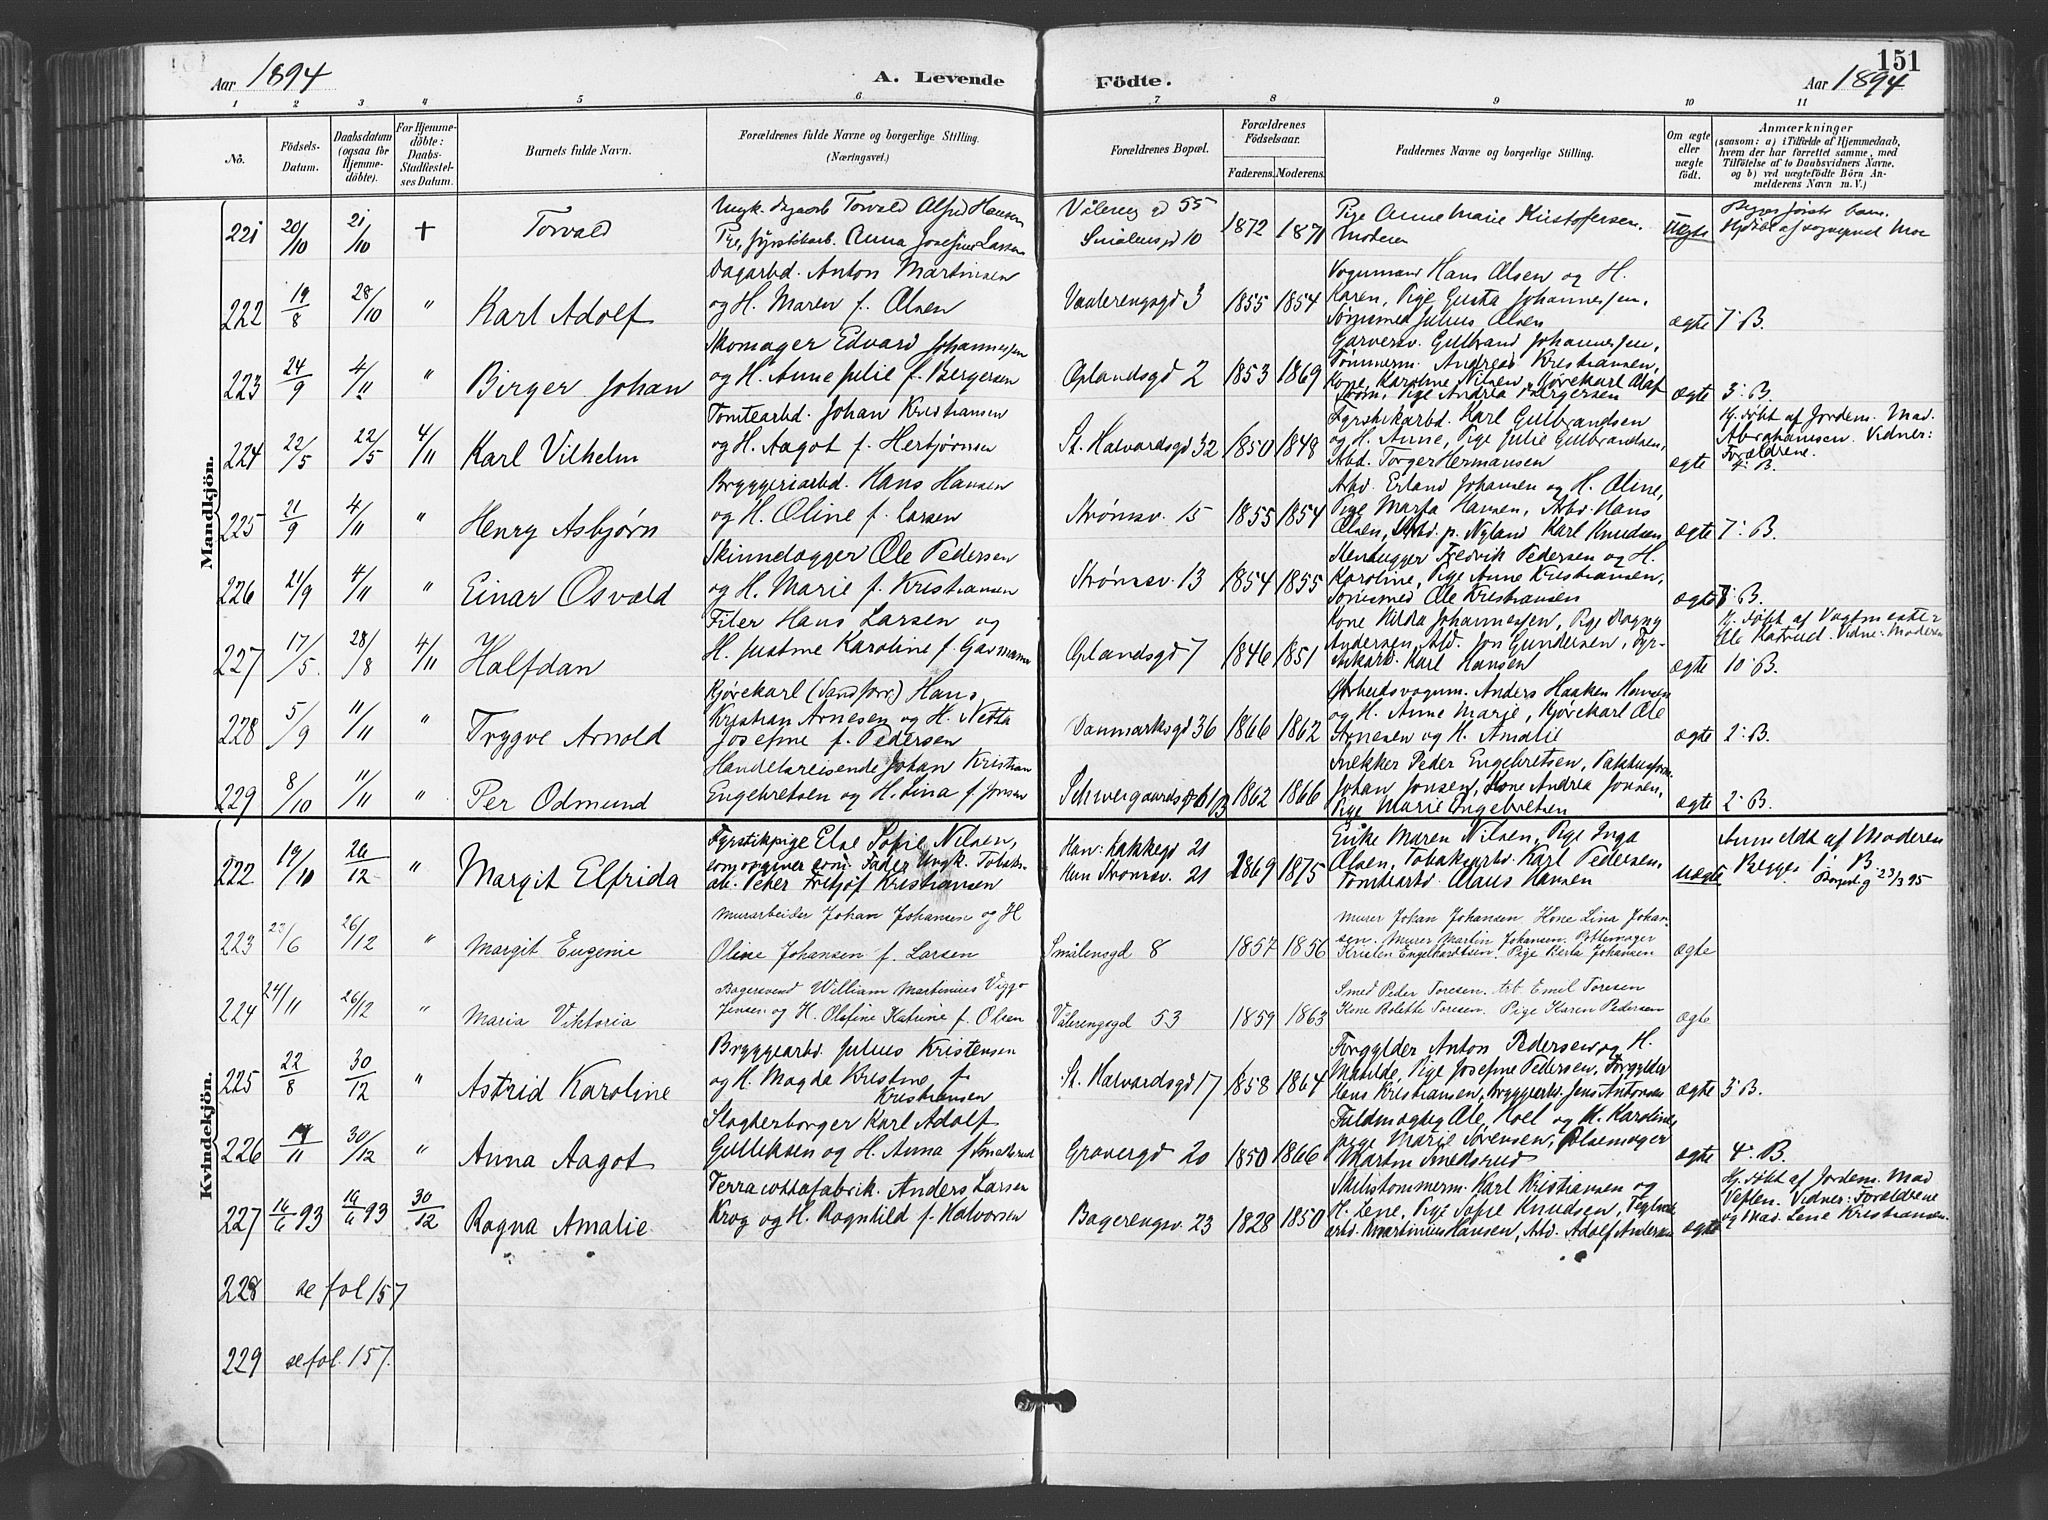 151
Aar 1894
A. Levende
Födte.
Aar 1894
1 2 3 4 5 6 7 8 9 10 11
No.
Födsels-Datum.
Daabsdatum (ogsaa for Hjemme-döbte).
For Hjemme-döbte: Daabs-Stadfæstel-ses Datum.
Barnets fulde Navn.
Forældrenes fulde Navne og borgerlige Stilling.
(Næringsvei.)
Forældrenes Bopæl.
Forældrenes Födselsaar.
Faderens. Moderens.
Faddernes Navne og borgerlige Stilling.
Om ægte eller uægte födt.
Anmærkninger
(saasom: a) i Tilfælde af Hjemmedaab, hvem der har forrettet samme, med Tilföielse af to Daabsvidners Navne. og b) ved uægtefödte Börn An-melderens Navn m. V.)
Mandkjön.
221 20/10 21/10 + Torvald
Ungk. Torvald Alfred Hansen
Pie, fyrstikarb. Anna Josefine Larsen
Vålereng gd 55
Smålensgd 10
1872 1871
Pige Anne Marie Kristofersen.
Moderen
Uægte
222 19/8 28/10 " Karl Adolf
Dagarbd. Anton Martinsen
og H. Maren f. Olsen
Vaalerengsgd 3
1855 1854
Vognmand Hans Olsen og H.
Karen, Pige Gusta Johannessen,
Julius Olsen
ægte 7: B.
223 24/9 4/11 " Birger Johan
Skomager Edvard Johannessen
og H. Anne Julie f. Bergersen
Oplandsgd 2
1853 1869
Garversv. Gulbrand Johannessen,
Tømmerm. Andreas Kristiansen,
Kone, Karoline Nilsen, Kjørekarl Olaf
Strøm, Pige Andrea Bergersen
ægte 3: B.
224 22/5 22/5 4/11 Karl Vilhelm
Tomtearbd. Johan Kristiansen
og H. Aagot f. Herbjørnsen
St. Halvardsgd 32
1850 1848
Fyrstikarbd. Karl Gulbrandsen
og H. Anne, Pige Julie Gulbrandsen,
Arbd. Torger Hermansen
ægte
Hj. døbt af Jordem. Mad.
Abrahamsen. Vidner:
Forældrene.
B.
225 21/9 4/11 " Henry Asbjørn
Bryggeriarbd. Hans Hansen
og H. Oline f. Larsen
Strømsv. 15
1855 1854
Arbd. Erland Johansen og H. Oline,
Pige Marfa Hansen, Arbd. Hans
Olsen, Arbd. p. Nyland Karl Knudsen
ægte 7: B.
226 21/9 4/11 " Einar Osvald
Skinnelægger Ole Pedersen
og H. Marie f. Kristiansen
Strømsv. 13
1854 1855
Stenhugger Fredrik Pedersen og H.
Karoline, Pige Anne Kristiansen,
Ole Kristiansen
ægte B.
227 17/5 28/8 4/11 Halfdan
Filer Hans Larsen og
H. Justine Karoline f. Garmann
Oplandsgd 7
1846 1851
Kone Hilda Johannessen, Pige Dagny
Andersen, Arbd. Jon Gundersen, Fyr-
stikarb. Karl Hansen
ægte
Hj. døbt af Vagtmester
Vidne: Moderen
10: B.
228 5/9 11/11 " Trygve Arnold
Kjørekarl (Sandforr.) Hans
Kristian Arnesen og H. Netta
Josefine f. Pedersen
Danmarksgd 36
1866 1862
Arbeidsvogum. Anders Haaken Hansen
og H. Anne Marie, Kjørekarl Ole
Arnesen og H. Amalie
ægte 2: B.
229 8/10 11/11 " Per Odmund
Handelsreisende Johan Kristian
Engebretsen og H. Lina f. Jonsen
Schweigaardsgd 61 B
1862 1866
Snekker Peder Engebretsen,
Johan Jonsen, Kone Andrea Jonsen,
Pige Marie Engebretsen
ægte 2: B.
Kvindekjön.
222 19/10 26/12 " Margit Elfrida
Fyrstikpige Else Sofie Nilsen,
som opgiver som Fader Ungk. Tobaks-
arb. Peter Fritjof Kristiansen
Han: Lakkegd 21
Hun Strømsv. 21
1869 1875
Enke Maren Nilsen, Pige Inga
Olsen, Tobaksarbd. Karl Pedersen,
Tomtearbd. Olaus Hansen
uægte
Anmeldt af Moderen
Begges 1: B. 23/3 95
223 23/6 26/12 " Margit Eugenie
Murarbeider Johan Johansen og H
Oline Johansen f. Larsen
Smålensgd 8
1857 1856
Murer Johan Johansen. Kone Lina Johan-
sen. Murer Martin Johansen. Pottemager
Kristen Engelhardtsen. Pige Berta Johansen
ægte
224 24/11 26/12 " Maria Viktoria
Bagersvend William Martinius Viggo
Jensen og H. Olefine Katrine f. Olsen
Vålerengsgd 53
1859 1863
Smed Peder Toresen. Arb. Emil Toresen
Kone Bolette Toresen. Pige Karen Pedersen
ægte
225 22/8 30/12 " Astrid Karoline
Bryggearbd. Julius Kristensen
og H. Magda Kristine f.
Kristiansen
St. Halvardsgd 17
1858 1864
Forgylder Anton Pedersen og H.
Matilde, Pige Josefine Pedersen, Forgylder
Hans Kristiansen, Bryggerbd. Jens Antonsen
ægte 3 B.
226 14/11 30/12 " Anna Aagot
Slagterborger Karl Adolf
Gulliksen og H. Anna f. Smedsrud
Grøvergd 20
1850 1866
Fuldmægtig Ole Hoel og H. Karoline,
pige Marie Sørensen, Pølsemager
Martin Smedsrud
ægte 4: B.
227 14/6 93 19/6 93 30/12 Ragna Amalie
Terracottafabrik. Anders Larsen
Krog og H. Ragnhild f. Halvorsen
Bagerengsv. 23
1828 1850
Skibstømmerm. Karl Kristiansen og
H. Lene, Pige Sofie Knudsen, Teglverk
arbd. Martinius Hansen, Arbd. Adolf Andersen
ægte
Hj. døbt af Jordem. Mad
Vetlen. Vidner: Forældrene
og Mad. Lene Kristiansen.
228 se fol 157
229 se fol. 157.